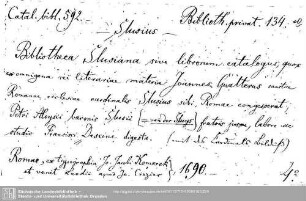 Catal. bibl. 592.
Biblioth. privat. 134.
Slusius
Bibliotheca Slusiana sive librorum catalogus, quos
ex omnigena rei literariae materia Joannes Gualterus
Romanae ecclesiae cardinalis Slusius sibi Romae congesserat,
Petri Aloysii baronis Slusii fratris jussu, labore ac
studio Francisci Deseine digesta.
Romae, ex typographia Jo. Jacobi Komarek
1690.
4°